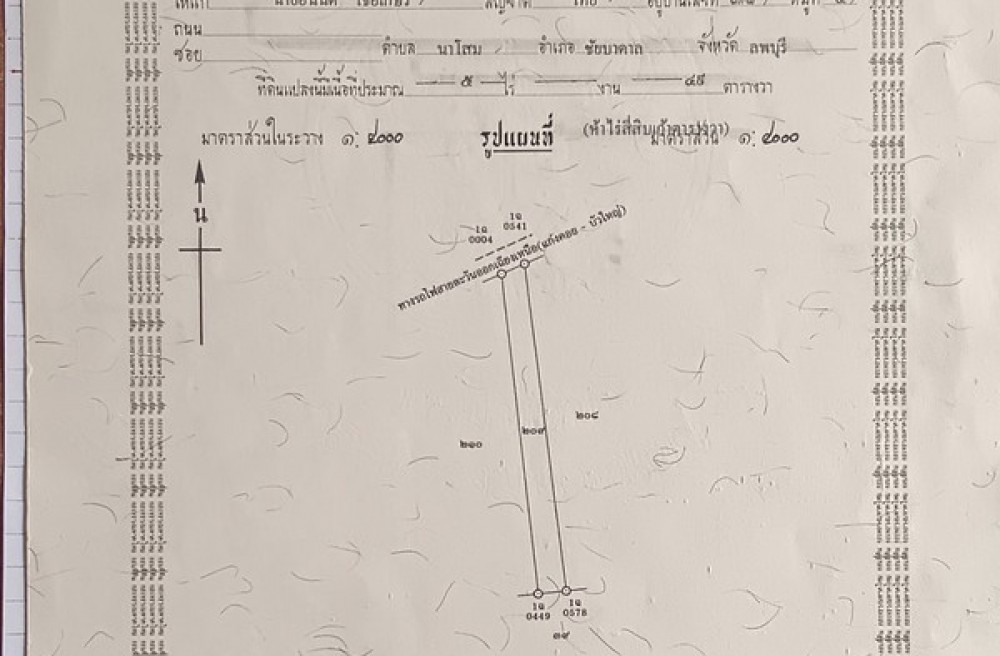 ถนน
ซอย ตำบล นาโสม อำเภอ ชัยบาดาล จังหวัด ลพบุรี
ที่ดินแปลงนี้มีเนื้อที่ประมาณ ๕ ไร่ งาน ๔๙ ตารางวา
(ห้าไร่สี่สิบเก้าตารางวา)
มาตราส่วนในระวาง ๑: ๔๐๐๐ รูปแผนที่ มาตราส่วน ๑: ๔๐๐๐
น
1ฉ 0004
1ฉ 0541
ทางรถไฟสายตะวันออกเฉียงเหนือ(แก่งคอย - บัวใหญ่)
๒๑๐ ๒๐๙ ๒๐๘
1ฉ 0449
1ฉ 0578
๓๙